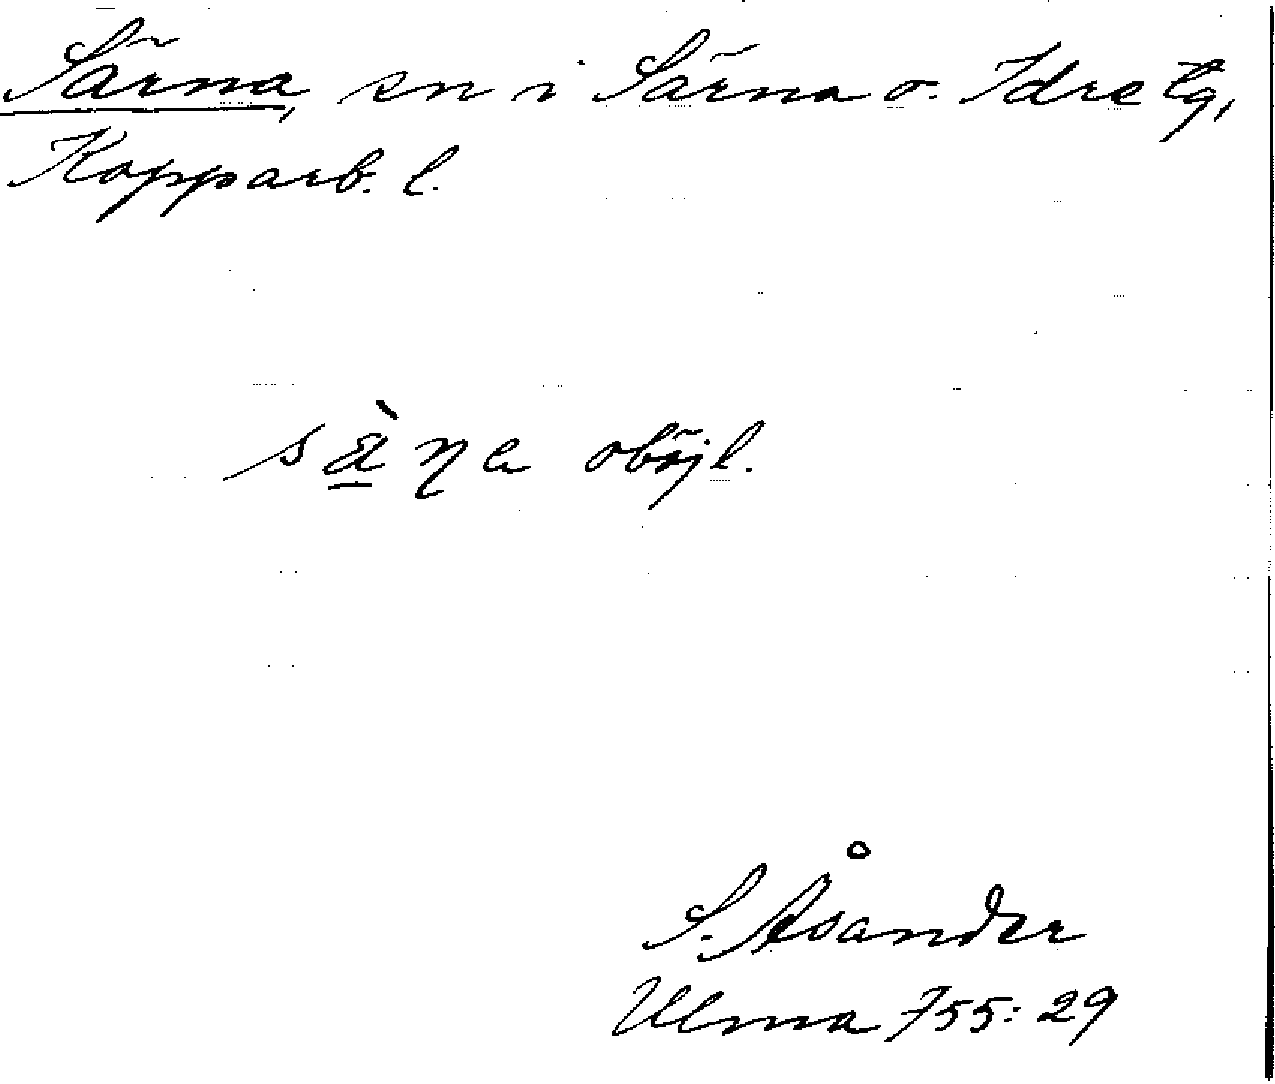 Särna, sn i Särna o. Idre tg,
Kopparb. l.
sä̀ɳa oböjl.
S. Åsander
Ulma 755:29